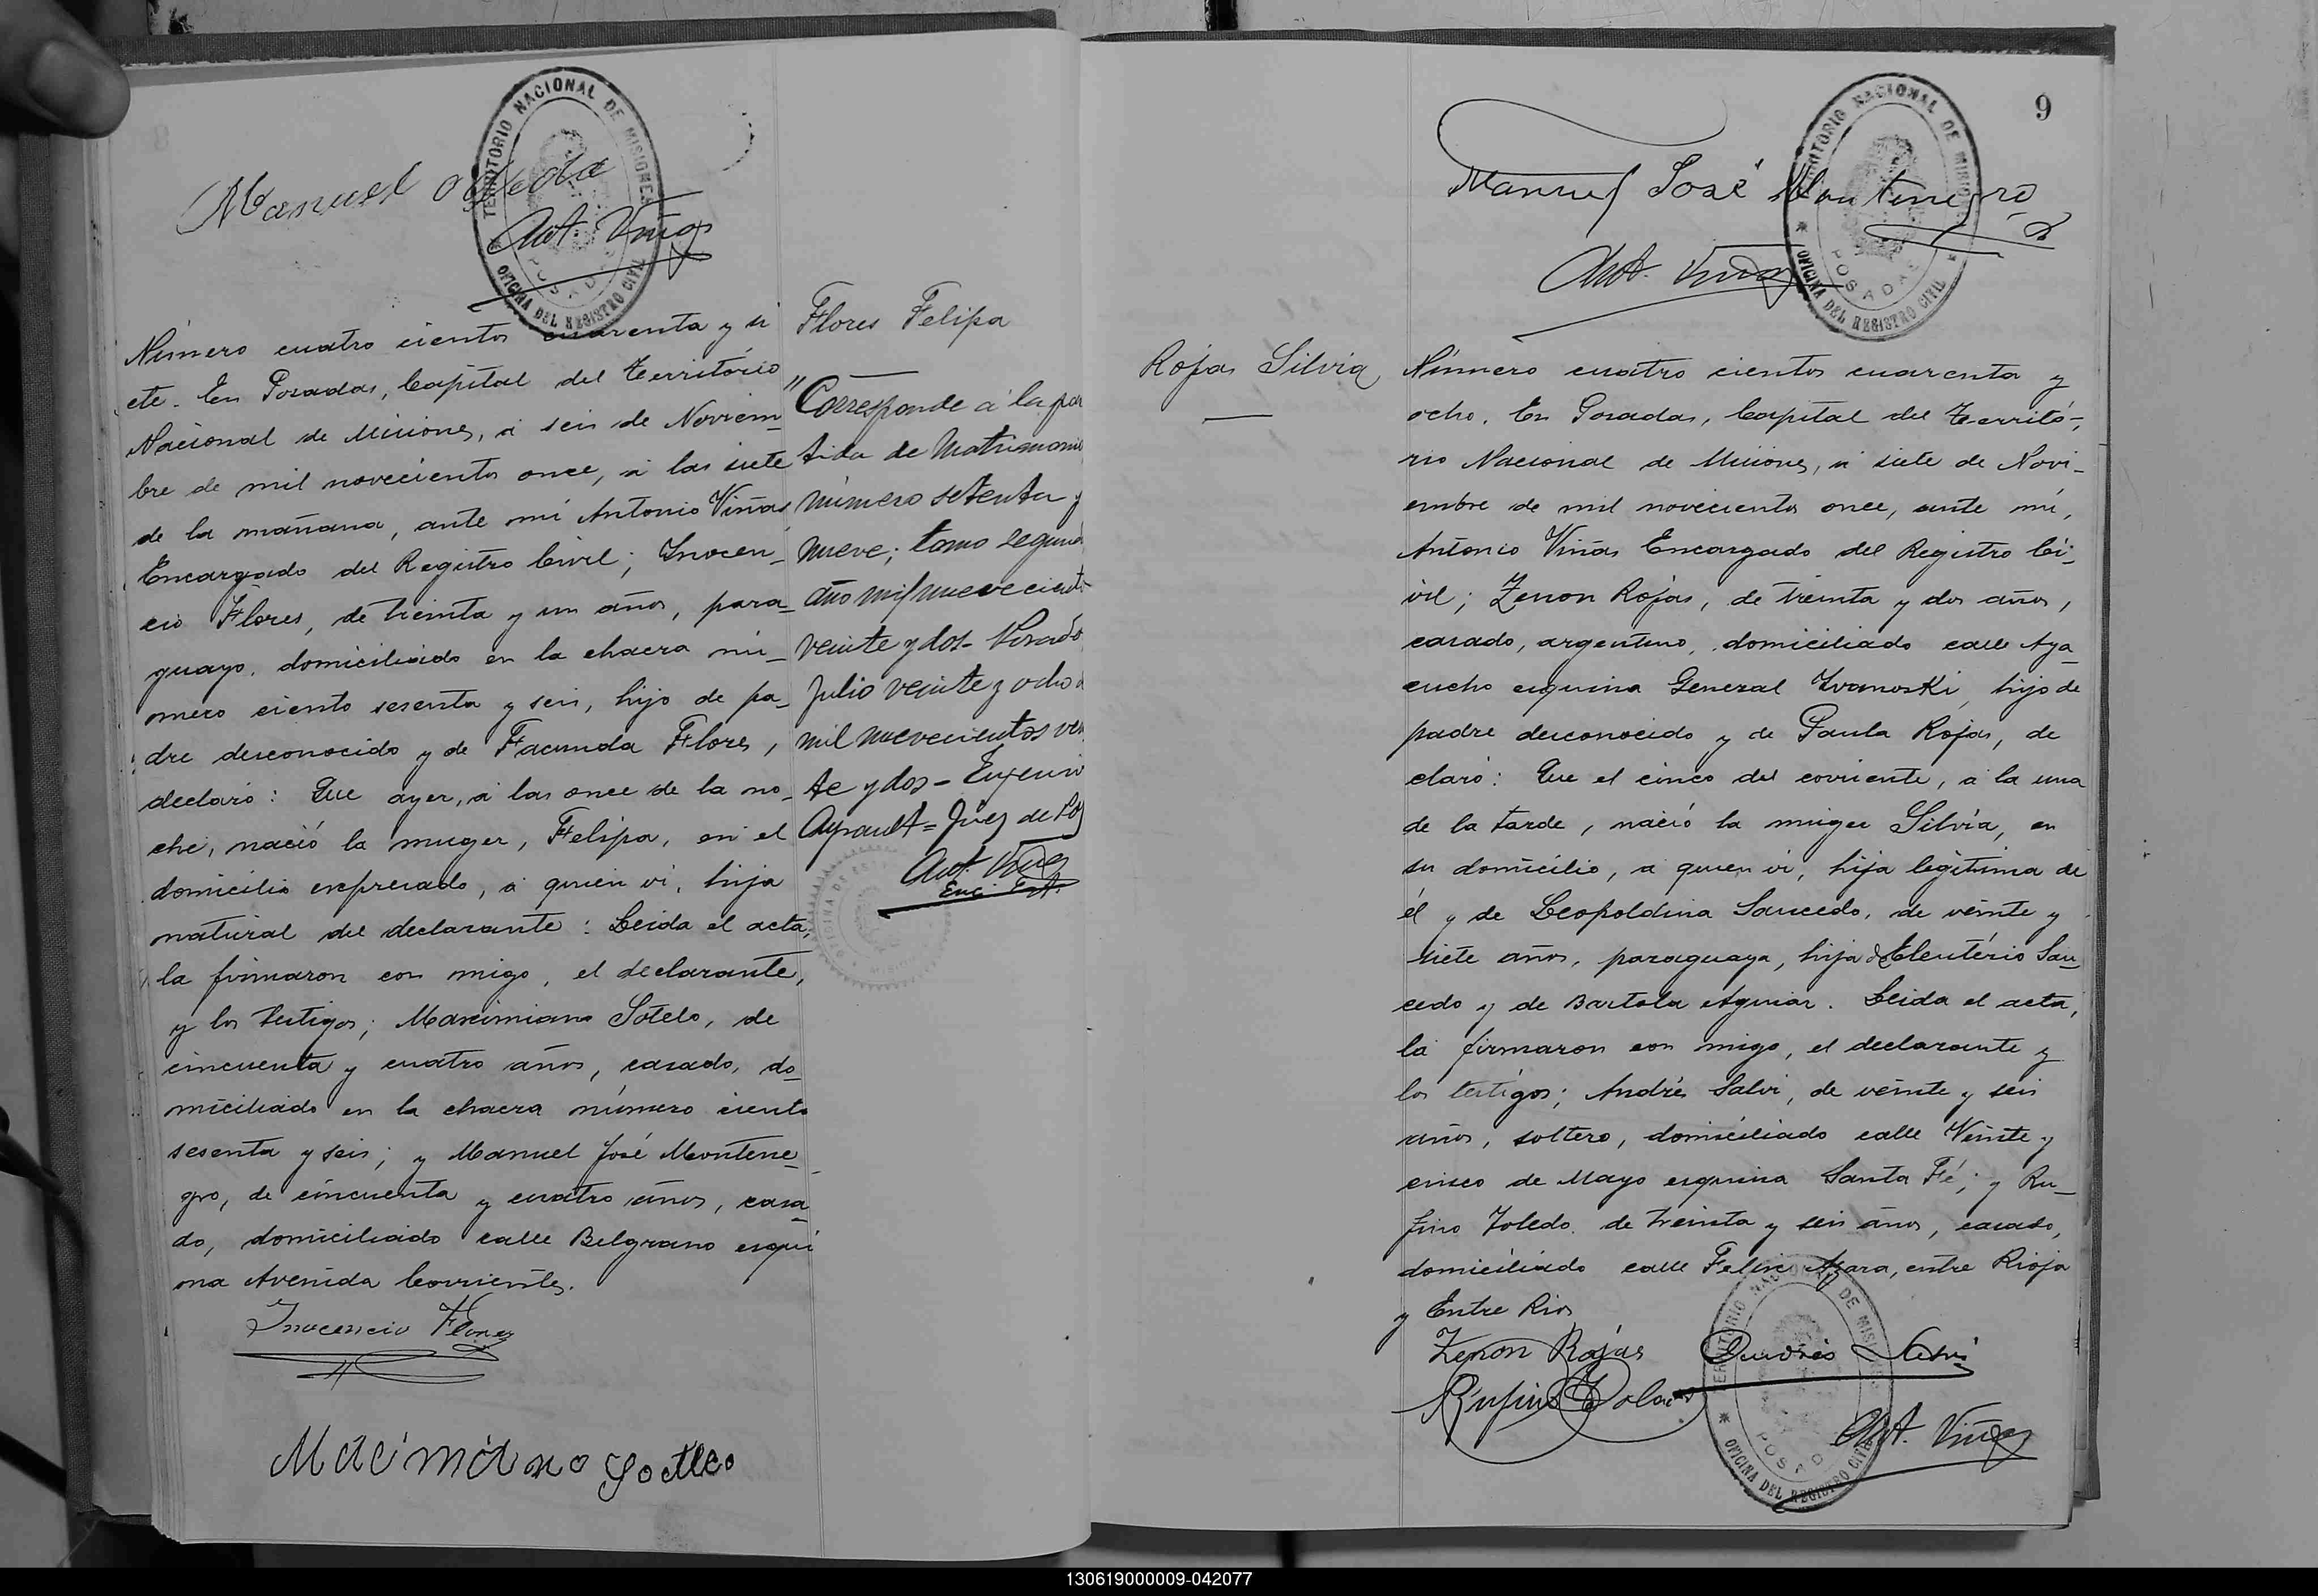 Manuel Ojeda
Ant. Viñas
TERRITORIO NACIONAL DE MISIONES
POSADAS
OFICINA DEL REGISTRO CIVIL
Número cuatro cientos cuarenta y si
ete. En Posadas, Capital del Território
Nacional de Misiones, á seis de Noviem-
bre de mil novecientos once, á las siete
de la mañana, ante mí Antonio Viñas
Encargado del Registro Civil; Inocen-
cio Flores, de treinta y un años, para-
guayo, domiciliado en la chacra nú-
mero ciento sesenta y seis, hijo de pa-
dre desconocido y de Facunda Flores,
declaró: Que ayer, á las once de la no-
che, nació la muger, Felipa, en el
domicilio expresado, á quien vi, hija
natural del declarante: Leida el acta,
la firmaron con migo, el declarante,
y los testigos; Maximiano Sotelo, de
cincuenta y cuatro años, casado, do-
miciliado en la chacra número ciento
sesenta y seis; y Manuel José Montene-
gro, de cincuenta y cuatro años, casa-
do, domiciliado calle Belgrano esqui
na Avenida Corrientes.
Inocencio Flores
Macimiano Sotleo
Flores Felipa
"Corresponde á la par
tida de Matrimonio
número setenta y
nueve; tomo segund
año mil nueve ciento
veinte y dos- Posado
Julio veinte y ocho d
mil nuevecientos vein
te y dos- Eugenio
Ayrault= Juez de Paz
Ant. Viñas
Enc. Est.
9
Manuel José Montenegro
Ant. Viñas
TERRITORIO NACIONAL DE MISIONES
POSADAS
OFICINA DEL REGISTRO CIVIL
Rojas Silvia
Número cuatro cientos cuarenta y
ocho. En Posadas, Capital del Territó-
rio Nacional de Misiones, á siete de Novi-
embre de mil novecientos once, ante mí,
Antonio Viñas Encargado del Registro Ci-
vil; Zenon Rojas, de treinta y dos años,
casado, argentino, domiciliado calle Aya-
cucho esquina General Ivanoski, hijo de
padre desconocido y de Paula Rojas, de
claró: Que el cinco del corriente, á la una
de la tarde, nació la muger Silvia, en
su domicilio, á quien vi, hija legítima de
él y de Leopoldina Saucedo, de veinte y
siete años, paraguaya, hija de Eleutério Sau-
cedo y de Bartola Aguiar. Leida el acta,
la firmaron con migo, el declarante y
los testigos; Andrés Salvi, de veinte y seis
años, soltero, domiciliado calle Veinte y
cinco de Mayo esquina Santa Fé; y Ru-
fino Toledo, de treinta y seis años, casado,
domiciliado calle Felix Azara, entre Rioja
y Entre Rios
Zenon Rojas Andrés Salvi
Rufino Toledo
Ant. Viñas
TERRITORIO NACIONAL DE MISIONES
POSADAS
OFICINA DEL REGISTRO CIVIL
130619000009-042077